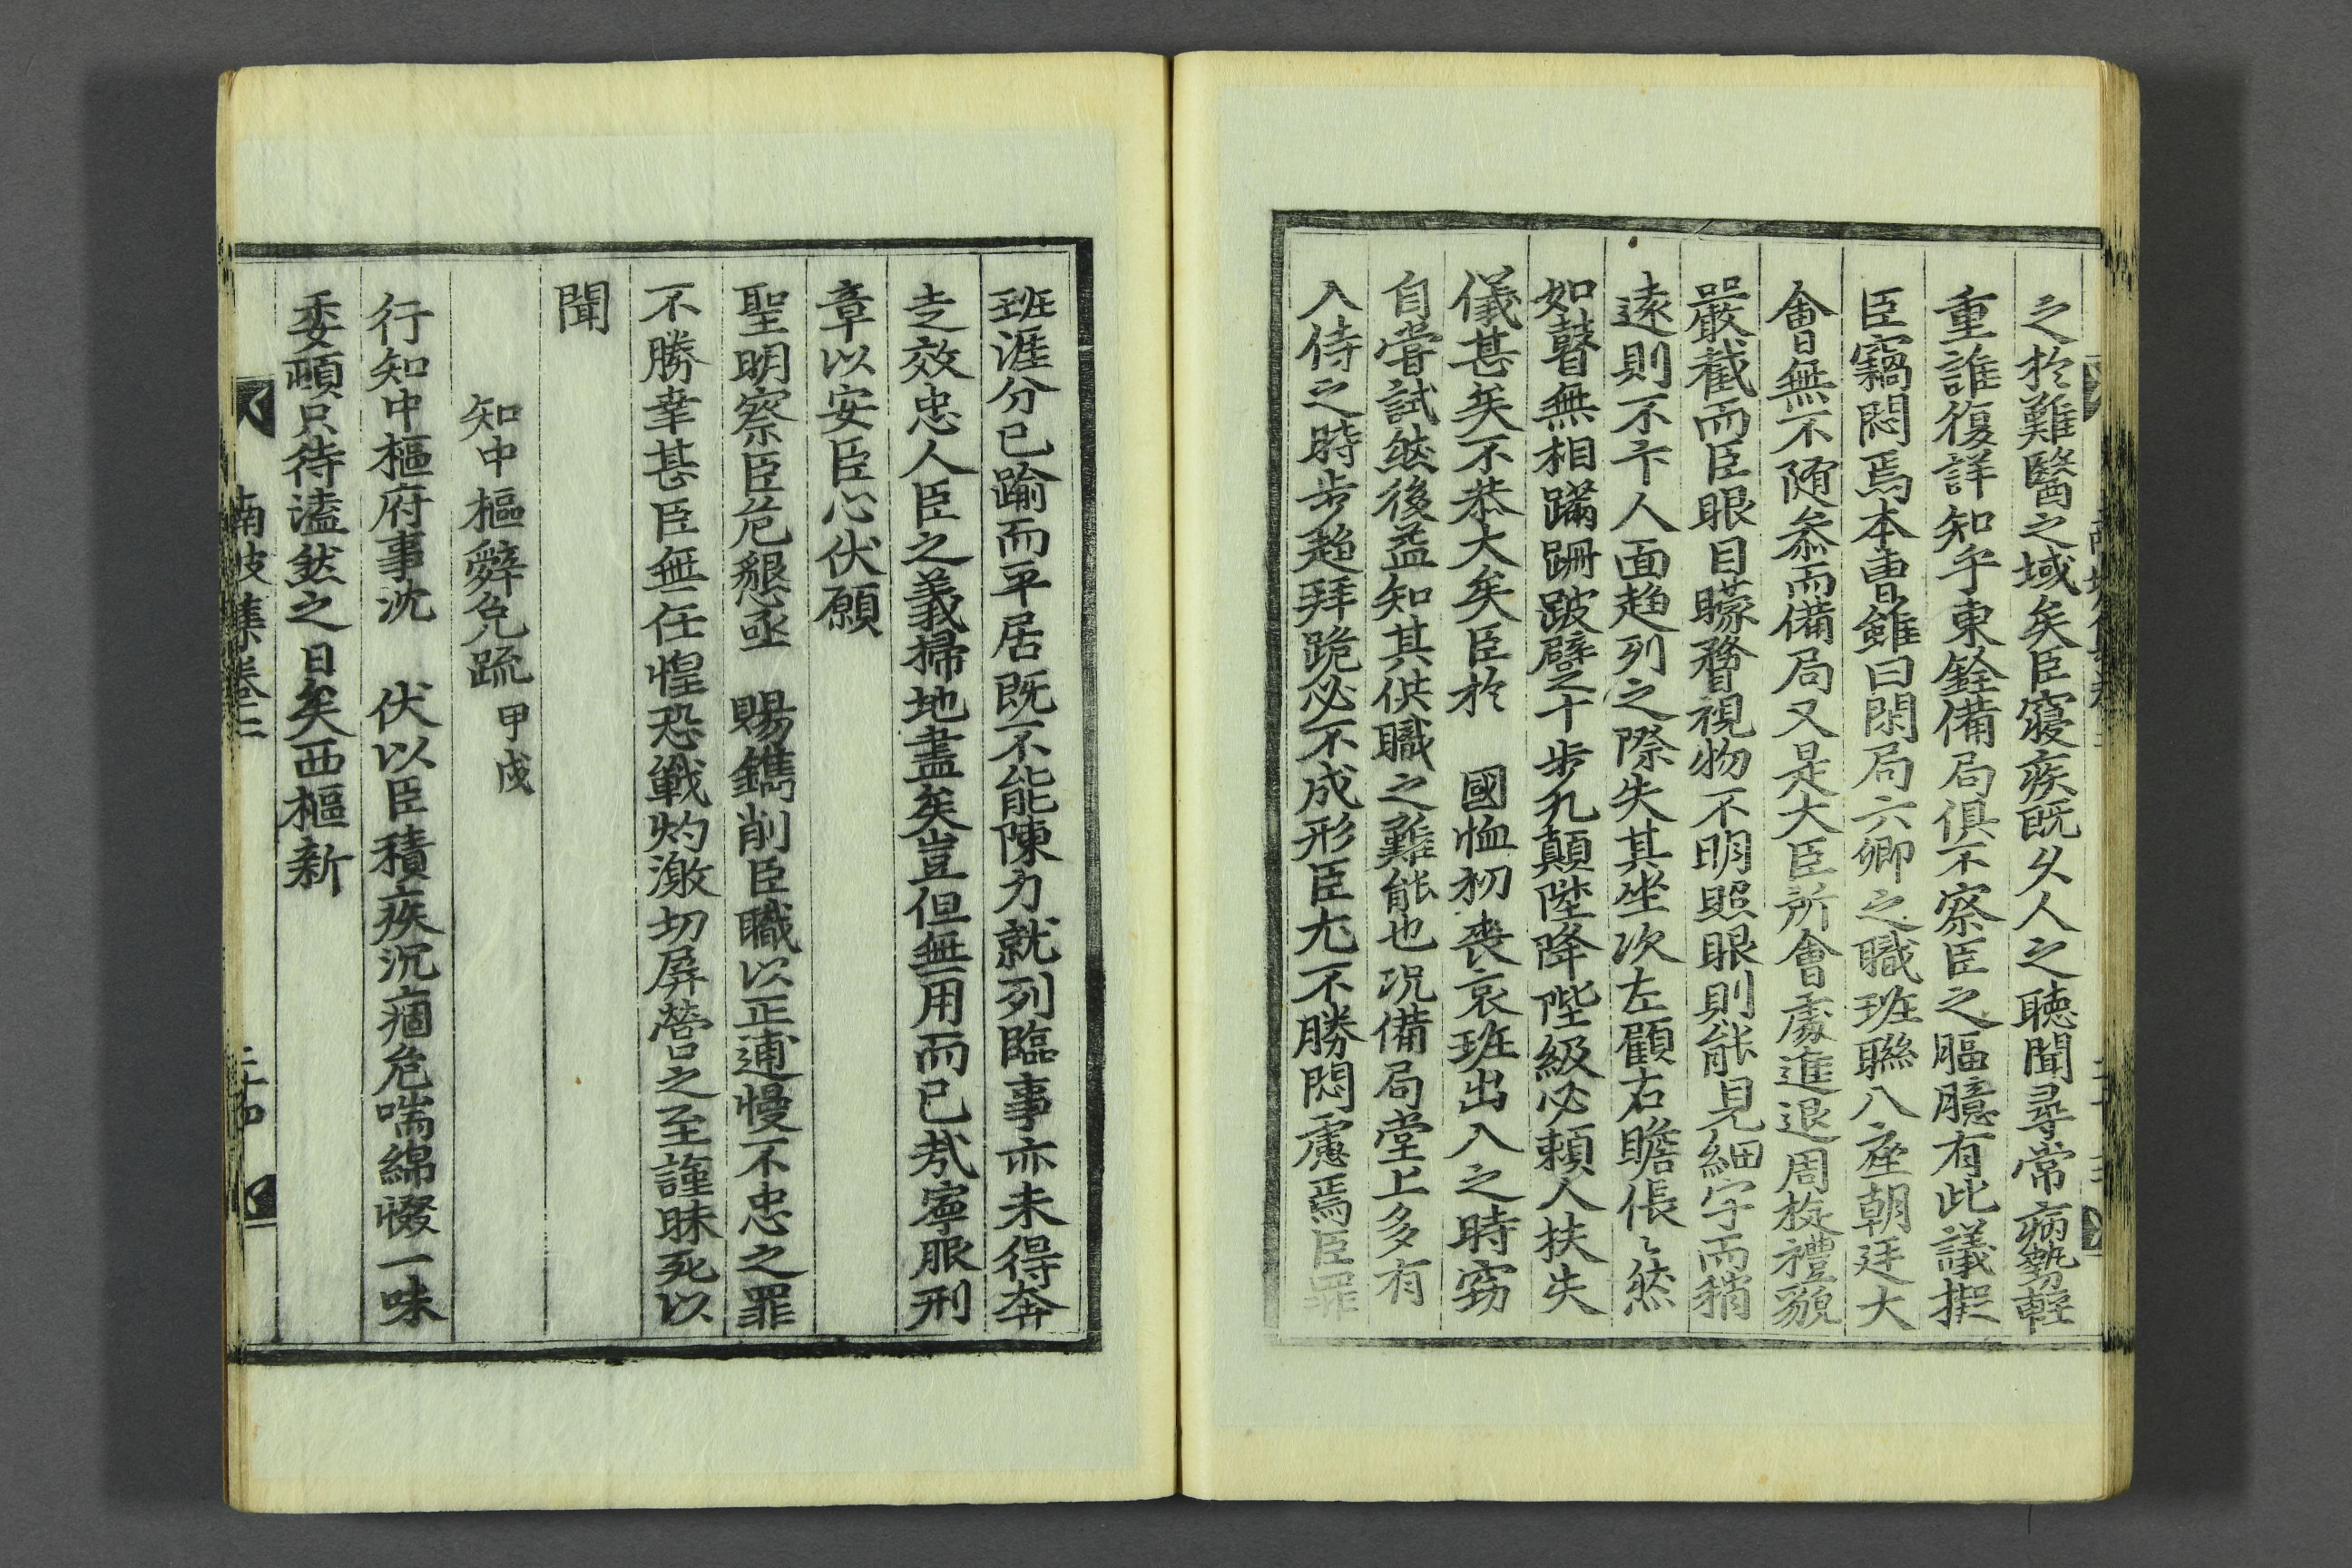 之於難醫之域矣臣寢疾旣久人之聽聞尋常病勢輕
重誰復詳知乎東銓備局俱不察臣之膒臆有此議擬
臣竊悶焉本曹雖曰閑局六卿之職班聯八座朝廷大
會無不随叅而備局又是大臣所會處進退周旋禮貌
嚴截而臣眼目矇瞀視物不明照眼則能見細字而稍
遠則不卞人面趍列之際失其坐次左顧右瞻倀〻然
如瞽無相蹣跚跛躄之十步九顛陞降陛級必賴人扶失
儀甚矣不恭大矣臣於　國恤初喪哀班出入之時窃
自嘗試然後益知其供職之難能也况備局堂上多有
入侍之時步趍拜跪必不成形臣尤不勝悶慮焉臣罪
班涯分已踰而平居既不能陳力就列臨事亦未得奔
走效忠人臣之義掃地盡矣豈但無用而已㢤寧服刑
章以安臣心伏願
聖明察臣危懇亟　賜鐫削臣職以正逋慢不忠之罪
不勝幸甚臣無任惶恐戰灼激切屏營之至謹昧死以
聞
知中樞辭免疏甲戌
行知中樞府事沈　伏以臣積疾沉痼危喘綿惙一味
委頓只待溘然之日矣西樞新
南坡集卷二
二十四